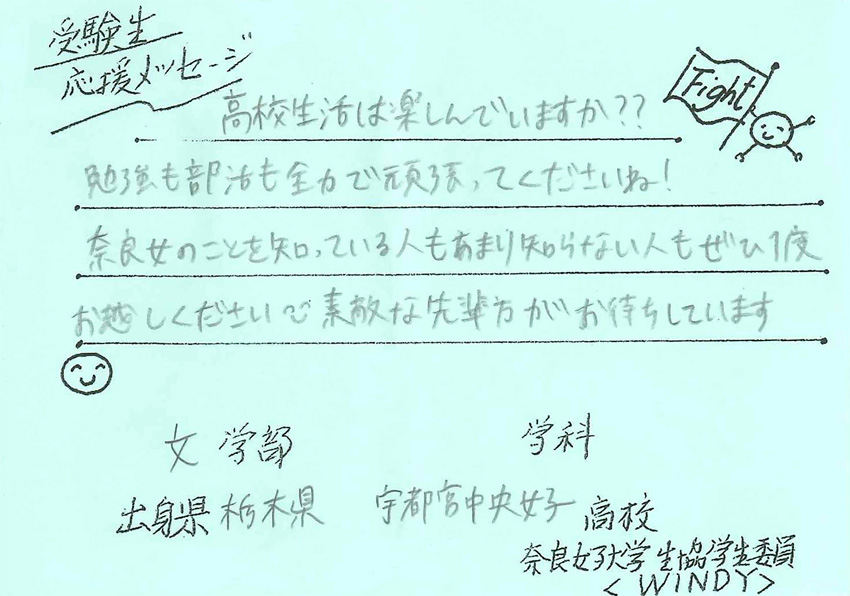 受験生
応援メッセージ
Fight
高校生活は楽しんでいますか??
勉強も部活も全力で頑張ってくださいね!
奈良女のことを知っている人もあまり知らない人もぜひ1度
お越しください〜素敵な先輩方がお待ちしています
文 学部 学科
出身県 栃木県 宇都宮中央女子 高校
奈良女子大学生協学生委員
<WINDY>